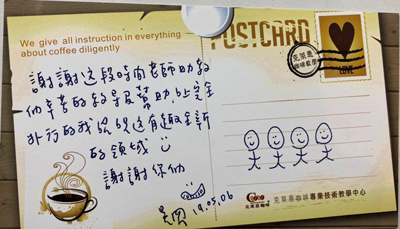 We give all instruction in everything
about coffee diligently
POSTCARD
克萊恩
咖啡教學
LOVE
謝謝这段時間老師助教
們辛苦的教學及幫助,让完全
外行的我認識这有趣全新
的領域
謝謝你们
19.05.06
克萊恩咖啡專業技術教學中心